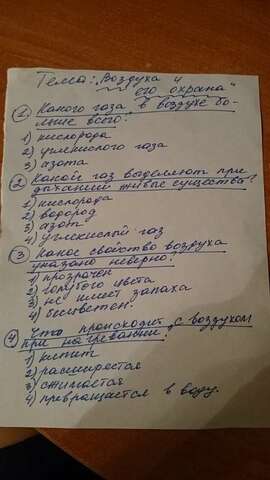 Тема: „Воздух и
его охрана"
1 Какого газа в воздухе бо-
льше всего?
1) кислорода
2) углекислого газа
3) азота
2 Какой газ выделяют при
дыхании живые существа?
1) кислорода
2) водород
3) азот
4) углекислый газ
3 Какое свойство воздуха
указано неверно?
1) прозрачен
2) голубого цвета
3) не имеет запаха
4) бесцветен
4 Что происходит с воздухом
при нагревании?
1) кипит
2) расширяется
3) сжимается
4) превращается в воду.